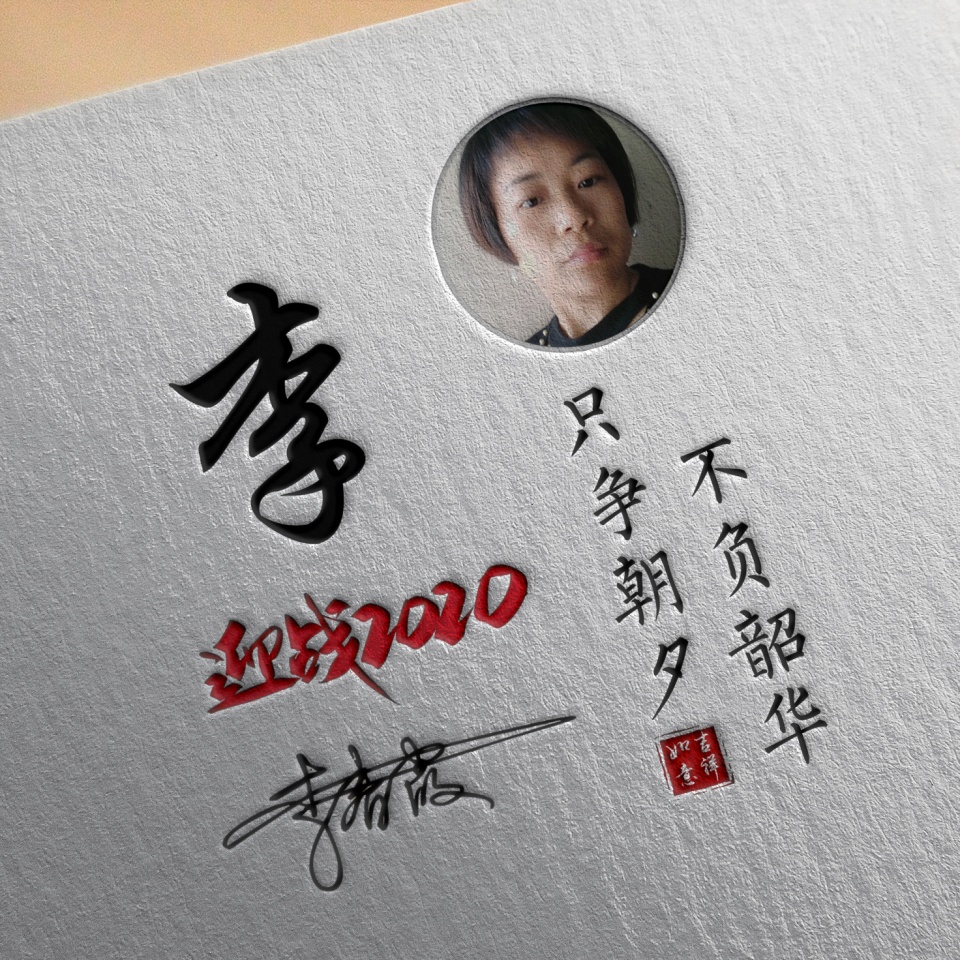 李
迎战2020
李春霞
只争朝夕
不负韶华
吉祥
如意